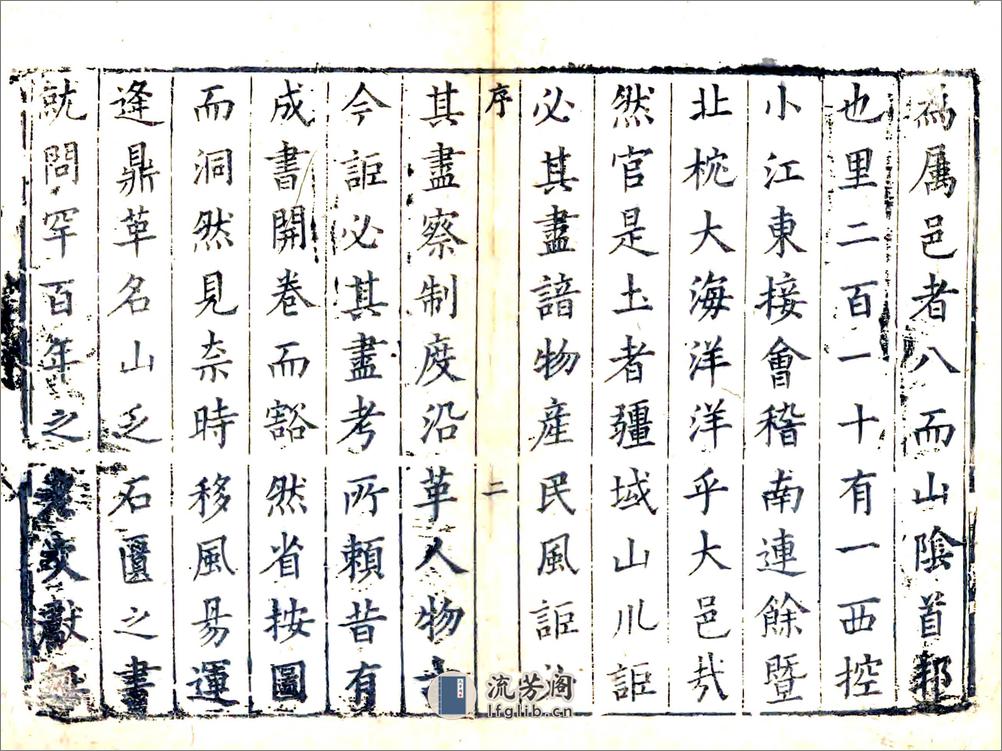 為属邑者八而山陰首邦
也里二百一十有一西控
小江東接會稽南連餘暨
北枕大海洋洋乎大邑哉
然官是土者疆域山川詎
必其盡諳物産民風詎
序 二
其盡察制度沿革人物
今詎必其盡考所頼昔有
成書開卷而豁然省按圖
而洞然見柰時移風易運
逢鼎革名山乏石匱之書
就問罕百年之老文獻無
流芳阁
lfglib.cn